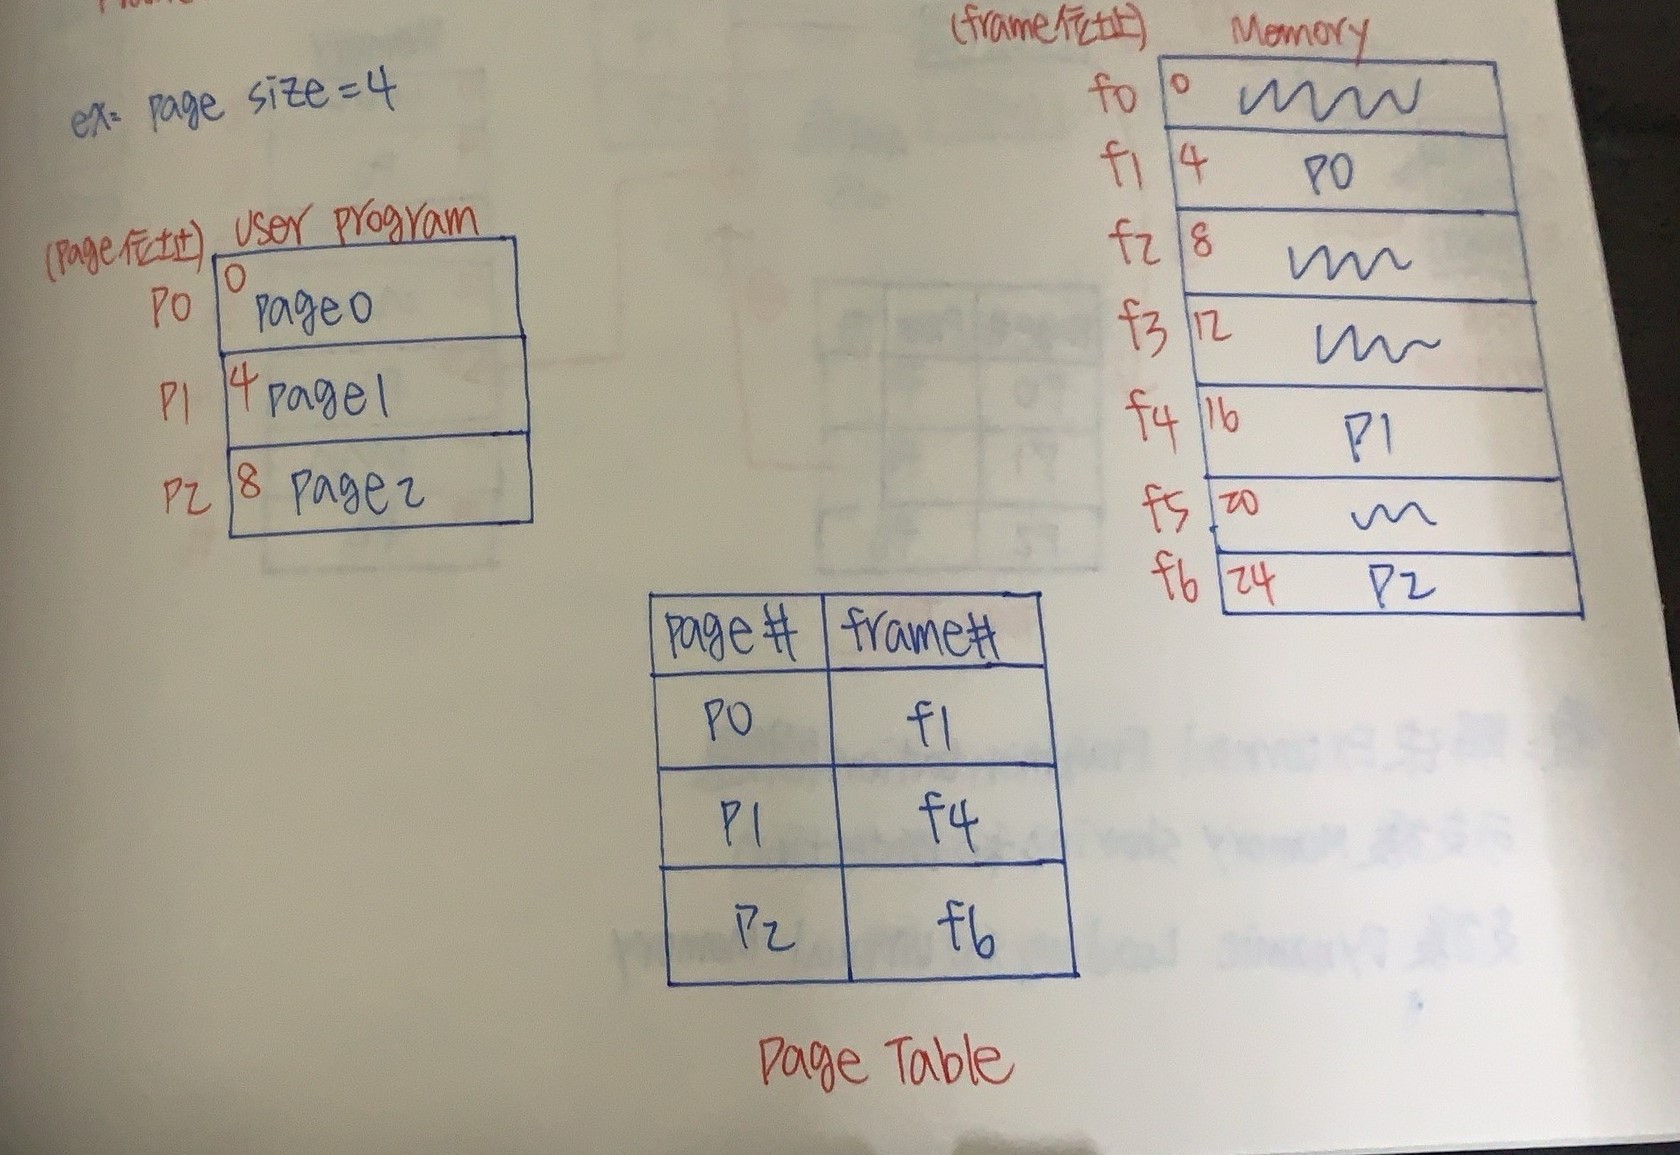 ex= page size=4
(page位址) user program
P0 0 page0
P1 4 page1
P2 8 page2
(frame位址) Memory
f0 0
f1 4 P0
f2 8
f3 12
f4 16 P1
f5 20
f6 24 P2
page# frame#
P0 f1
P1 f4
P2 f6
Page Table